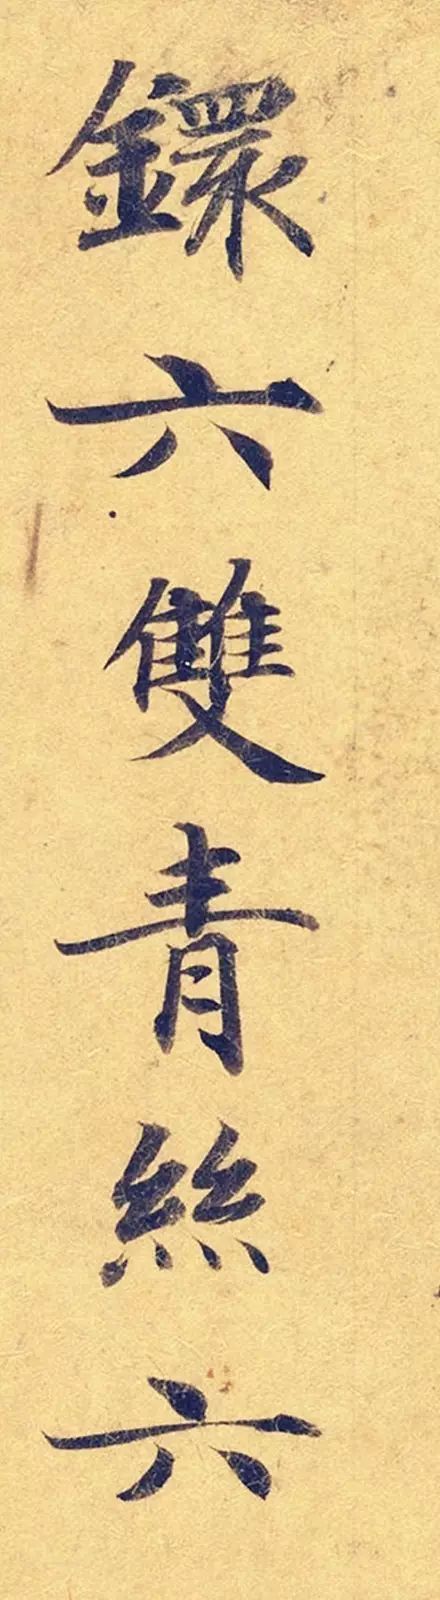 鐶六雙青絲六